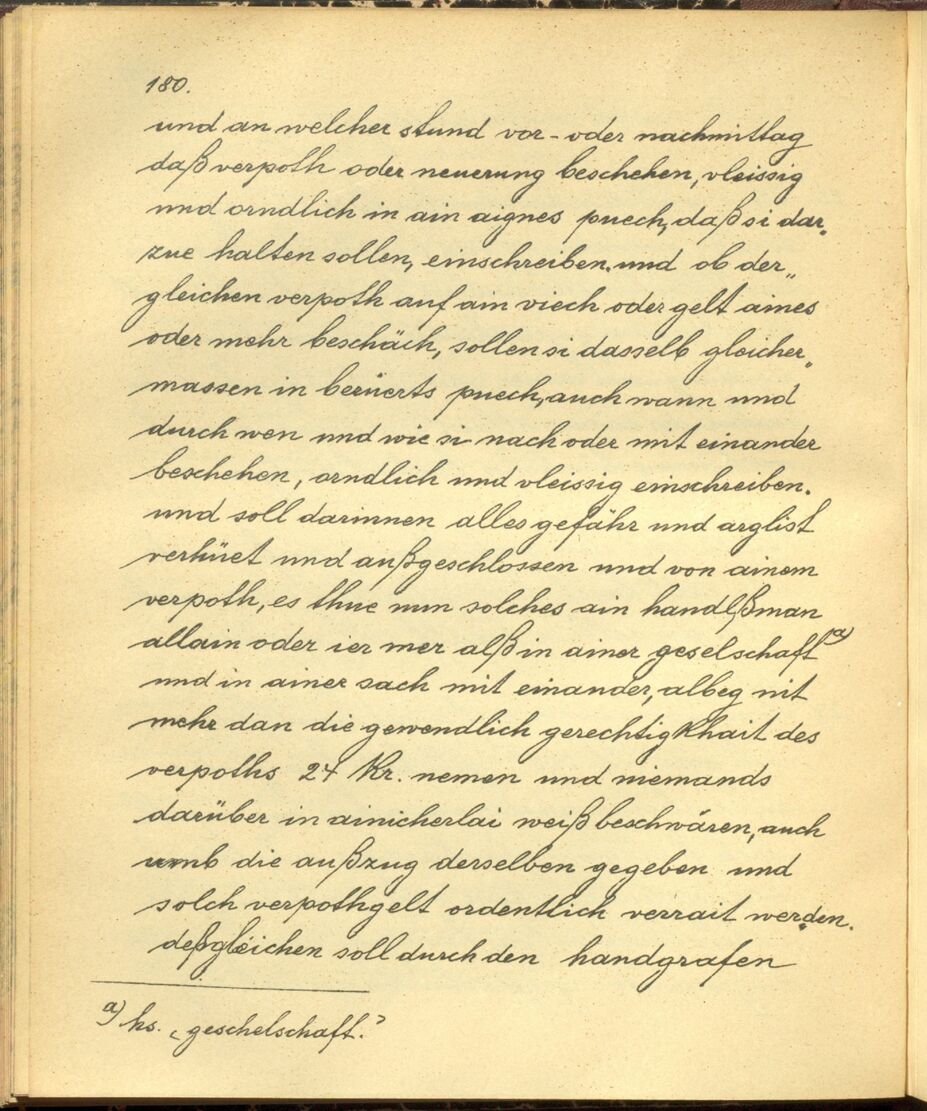 180.
und an welcher stund vor- oder nachmittag
daß verpoth oder neuerung beschehen, vleissig
und orndlich in ain aignes puech, daß si dar„
zue halten sollen, einschreiben. und ob der„
gleichen verpoth auf ain viech oder gelt aines
oder mehr beschäch, sollen si dasselb gleicher„
massen in berüerts puech, auch wann und
durch wen und wie si nach oder mit einander
beschehen, orndlich und vleissig einschreiben.
und soll darinnen alles gefähr und arglist
verhüet und außgeschlossen und von ainem
verpoth, es thue nun solches ain handlßman
allain oder ier mer alß in ainer geselschaft a)
und in ainer sach mit einander, albeg nit
mehr dan die gewendlich gerechtigkhait des
verpoths 24 Kr. nemen und niemands
darüber in ainicherlai weiß beschwären, auch
umb die außzug derselben gegeben und
solch verpothgelt ordentlich verrait werden.
deßgleichen soll durch den handgrafen
a) hs. „geschelschaft."